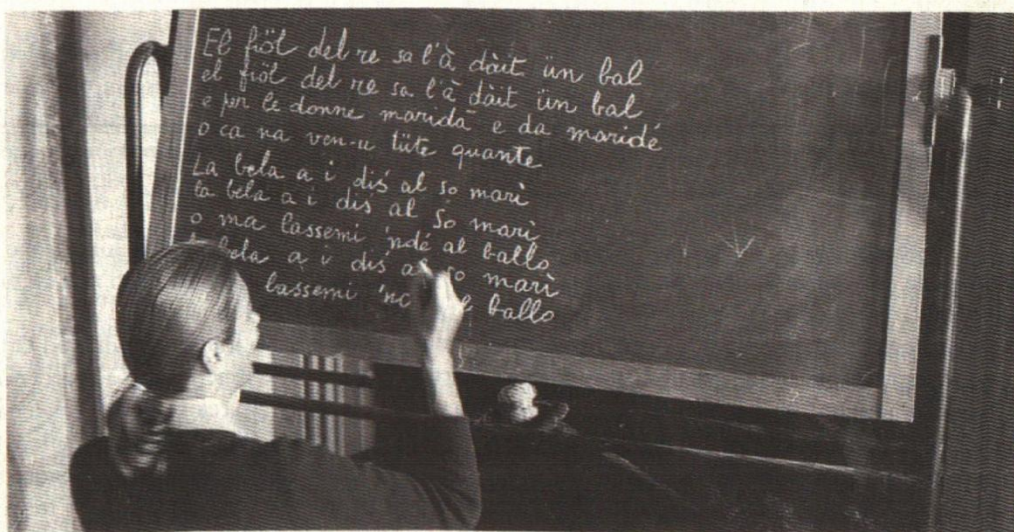 El fiöl del re sa l'à dàit ün bal
el fiöl del re sa l'à dàit ün bal
e per le donne maridà e da maridé
o ca na ven-u tüte quante
La bela a i dis' al so marì
la bela a i dis' al so marì
o ma lassemi 'ndé al ballo
bela a i dis' al so marì
lassemi ballo